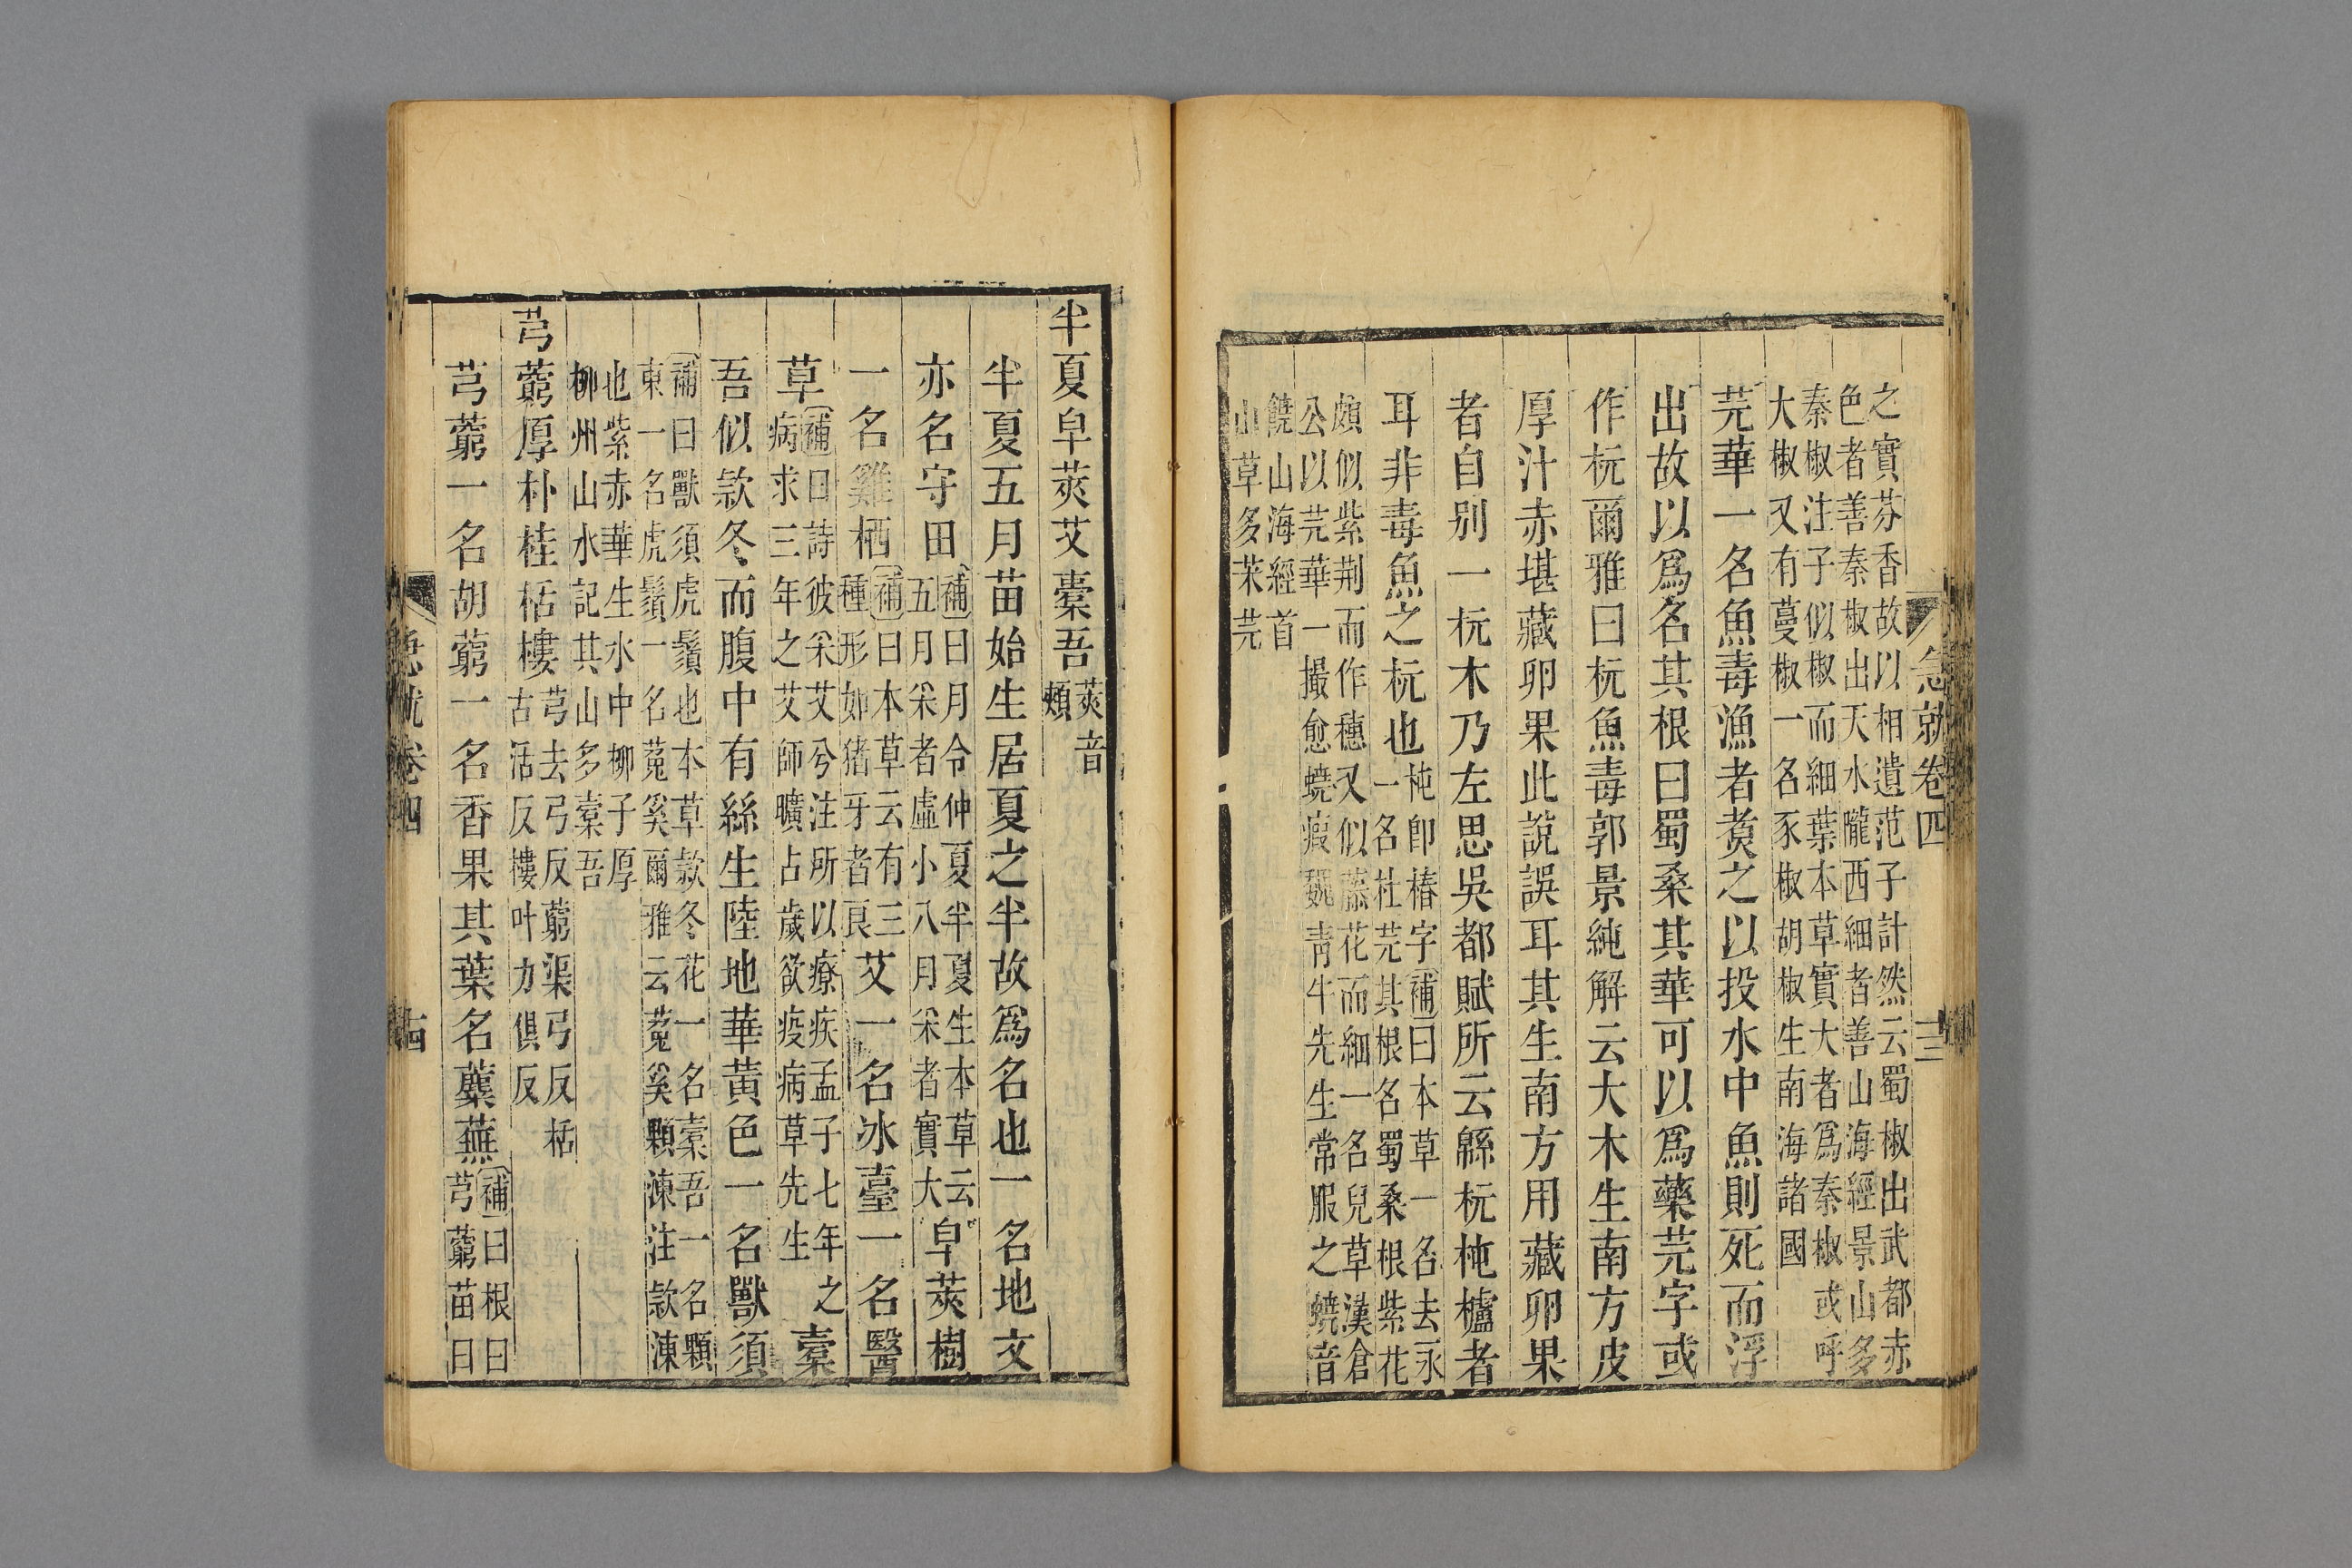 急就卷四
十三
之實芬香故以相遺范子計然云蜀椒出武都赤
色者善秦椒出天水隴西細者善山海經景山多
秦椒注子似椒而細葉本草實大者爲秦椒或呼
大椒又有蔓椒一名豕椒胡椒生南海諸國
芫華一名魚毒漁者煑之以投水中魚則死而浮
出故以爲名其根曰蜀桑其華可以爲藥芫字或
作杬爾雅曰杬魚毒郭景純解云大木生南方皮
厚汁赤堪藏卵果此說誤耳其生南方用藏卵果
者自别一杬木乃左思吳都賦所云緜杬杶櫨者
耳非毒魚之杬也
杶即椿字補曰本草一名去水
一名杜芫其根名蜀桑根紫花
頗似紫荆而作穗又似藤花而細一名兒草漢倉
公以芫華一撮愈蟯瘕魏靑牛先生常服之蟯音
饒山海經首
山草多茱芫
半夏皁莢艾橐吾
莢音
頰
半夏五月苗始生居夏之半故爲名也一名地文
亦名守田
補曰月令仲夏半夏生本草云
五月采者虛小八月采者實大
皁莢樹
一名雞栖
補曰本草云有三
種形如猪牙者良
艾一名冰臺一名醫
草
補曰詩彼采艾兮注所以療疾孟子七年之
病求三年之艾師曠占歲欲疫病草先生
橐
吾似款冬而腹中有絲生陸地華黃色一名獸須
補曰獸須虎鬚也本草款冬花一名橐吾一名顆
東一名虎鬚一名菟奚爾雅云菟奚顆涷注款涷
也紫赤華生水中柳子厚
柳州山水記其山多橐吾
芎藭厚朴桂栝樓
芎去弓反藭渠弓反栝
古活反樓叶力俱反
芎藭一名胡藭一名香果其葉名蘪蕪
補曰根曰
芎藭苗曰
急就卷四
十四